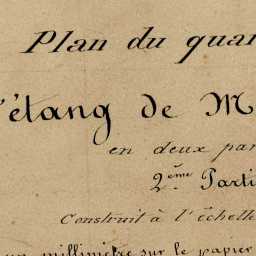 Plan du quar
l'étang de M
en deux par
2ème Parti
Construit à l'échelle
un millimètre sur le papier